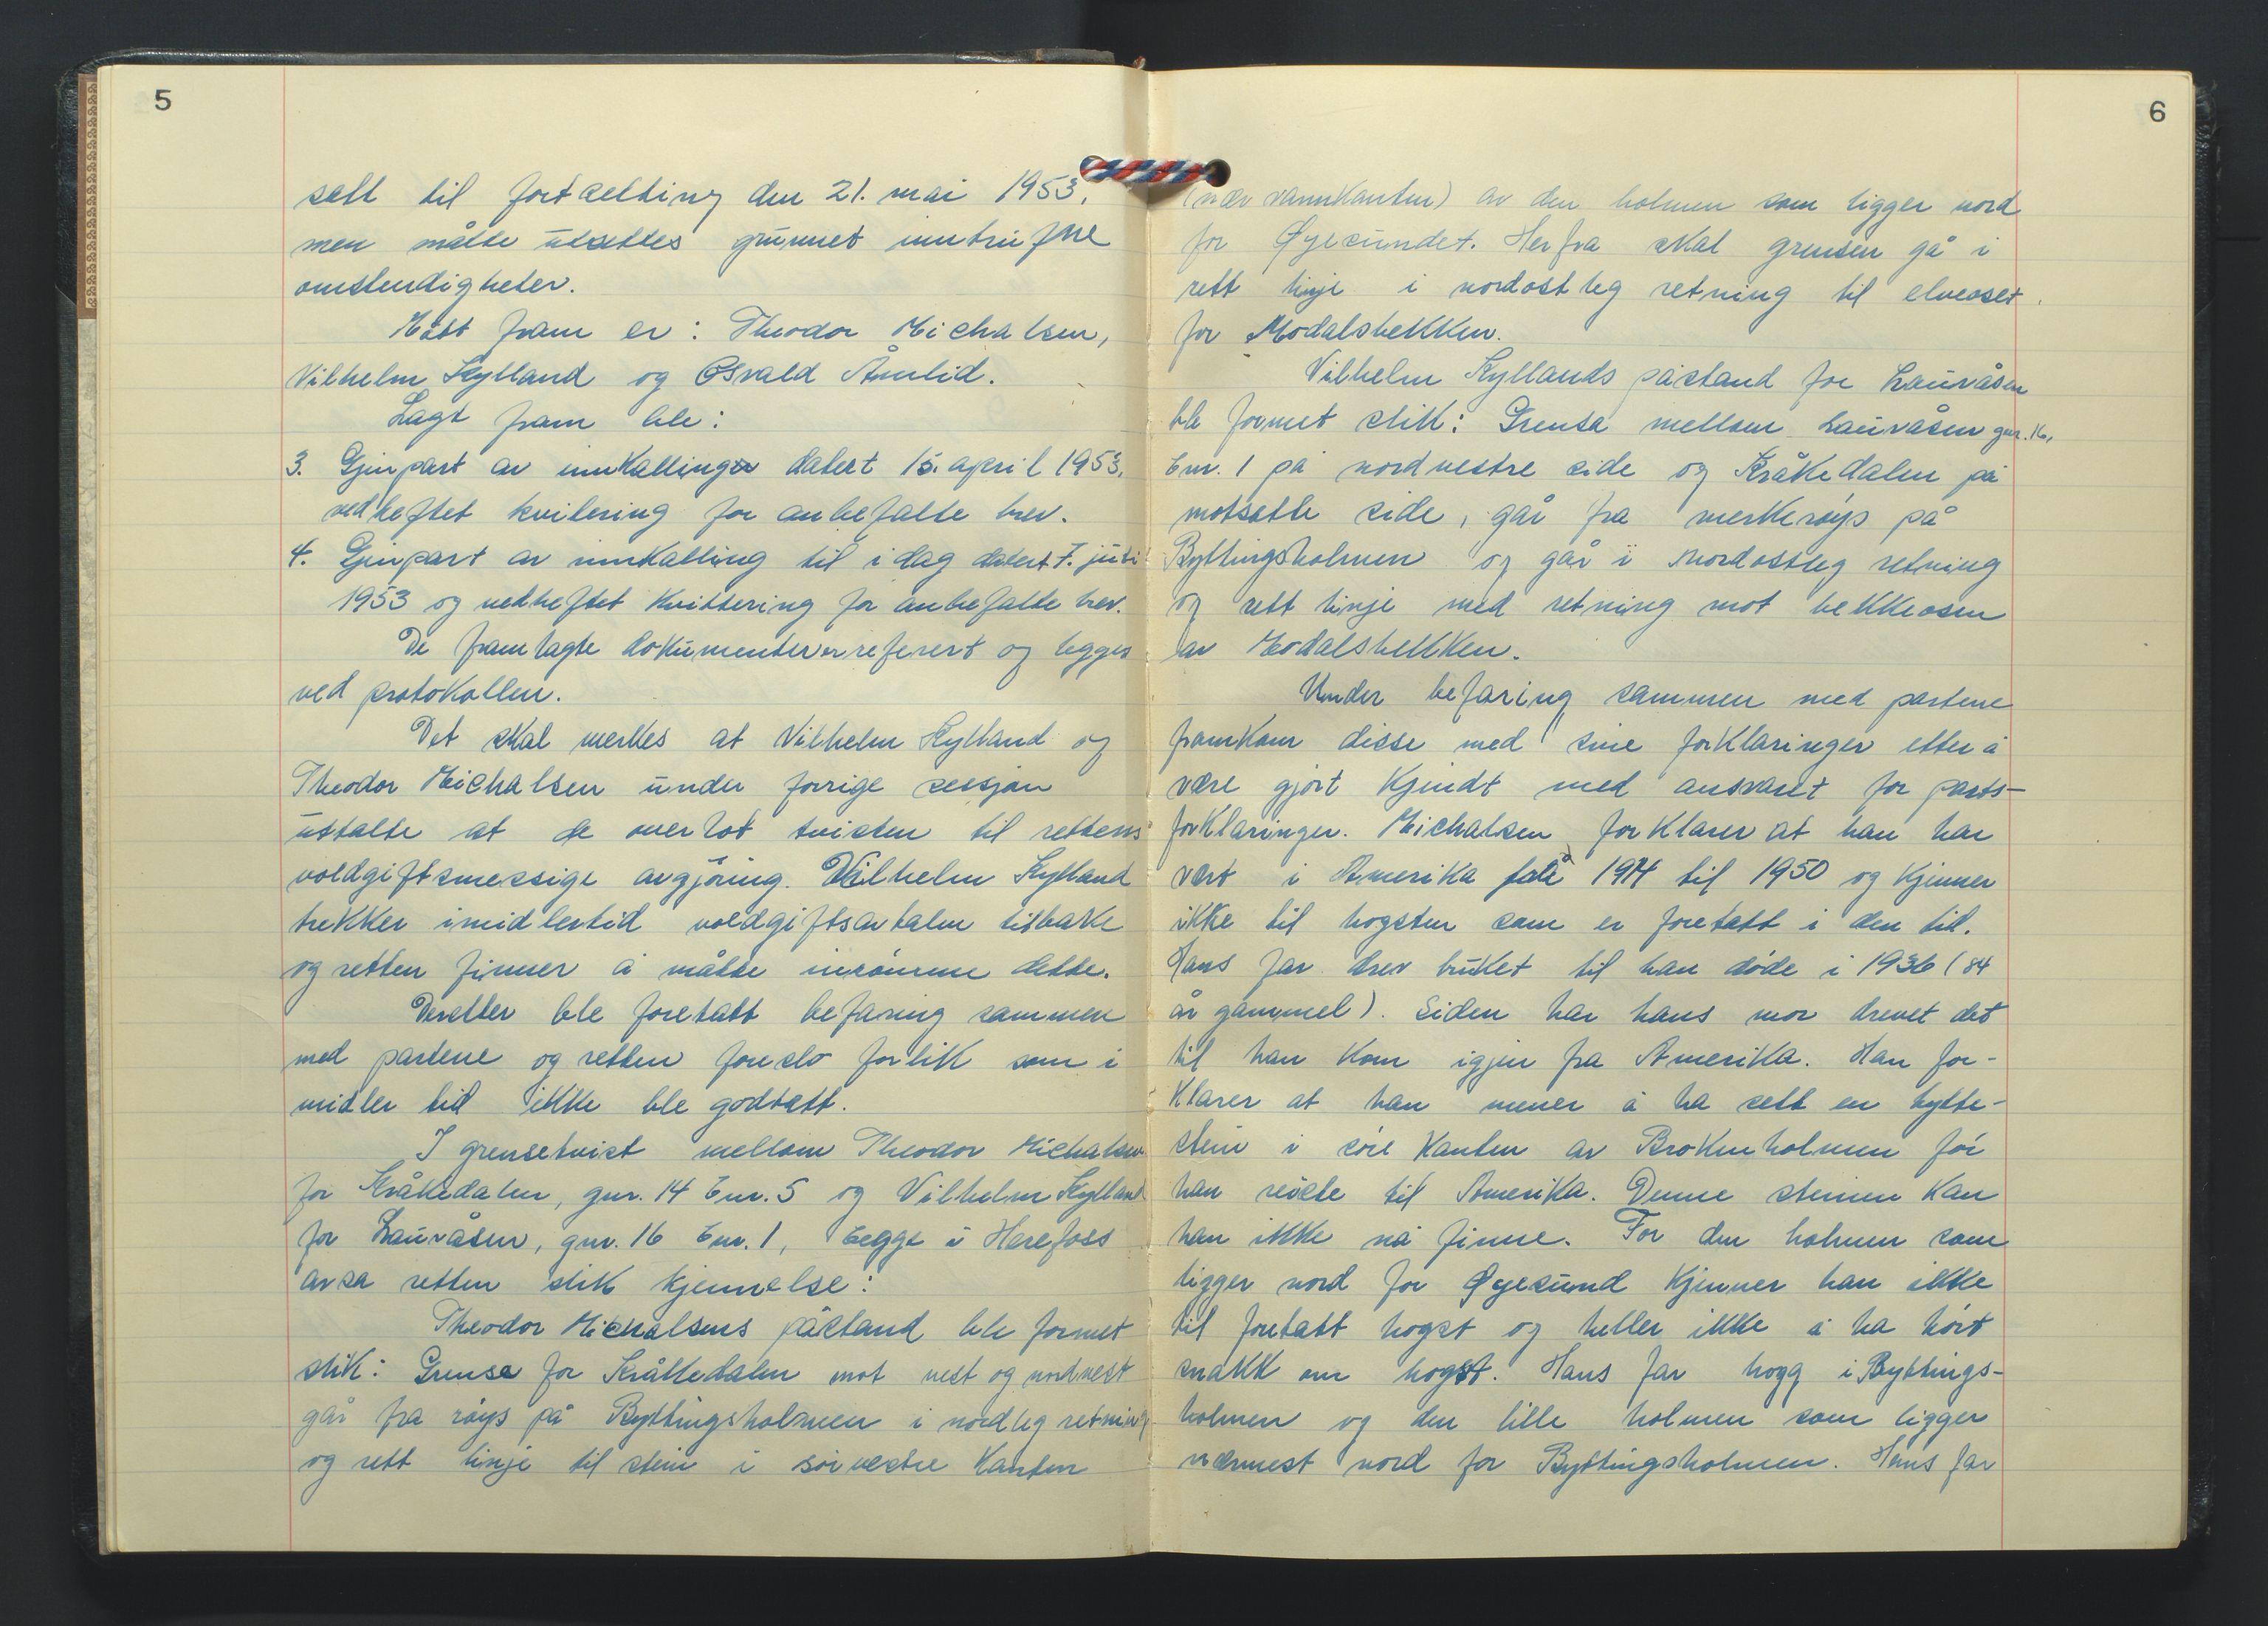 5
satt til fortsetting den 21. mai 1953,
men måtte utsettes grunnet inntrufne
omstendigheter.
Møtt fram er: Theodor Michalsen,
Vilhelm Kylland og Osvald Åmlid.
Lagt fram ble:
3. Gjenpart av innkalling datert 15. april 1953,
vedheftet kvitering for anbefalte brev.
4. Gjenpart av innkalling til i dag datert 7. juli
1953 og vedheftet kvittering for anbefalte brev.
De framlagte dokumenter er referert og legges
ved protokollen.
Det skal merkes at Vilhelm Kylland og
Theodor Michalsen under forrige sesjon
uttalte at de overlot tvisten til rettens
voldgiftsmessige avgjøring. Vilhelm Kylland
trekker imidlertid voldgiftsavtalen tilbake
og retten finner å måtte innrømme dette.
Deretter ble foretatt befaring sammen
med partene og retten foreslo forlik som i
midler tid ikke ble godtatt.
I grensetvist mellom Theodor Michalsen
for Kråkedalen, gnr. 14 bnr. 5 og Vilhelm Kylland
for Lauvåsen, gnr. 16 bnr. 1, begge i Herefoss
avsa retten slik kjennelse:
Theodor Michalsens påstand ble formet
slik: Grensa for Kråkedalen mot vest og nordvest
går fra røys på Byttingsholmen i nordleg retning
og rett linje til stein i sørvestre kanten
6
(nær vannkanten) av den holmen som ligger nord
for Øyesundet. Herfra skal grensen gå i
rett linje i nordostleg retning til elveoset
for Modalsbekken.
Vilhelm Kyllands påstand for Lauvåsen
ble formet slik: Grensa mellom Lauvåsen gnr. 16,
bnr. 1 på nordvestre side og Kråkedalen på
motsatte side, går fra merkerøys på
Byttingsholmen og går i nordostleg retning
og rett linje med retning mot bekkeosen
av Modalsbekken.
Under befaring sammen med partene
framkom disse med sine forklaringer etter å
være gjort kjendt med ansvaret for parts-
forklaringer. Michalsen forklarer at han har
vært i Amerika 1914 til 1950 og kjenner
ikke til hogsten som er foretatt i den tid.
Hans far drev bruket til han døde i 1936 (84
år gammel). Siden har hans mor drevet det
til han kom igjen fra Amerika. Han for-
klarer at han mener å ha sett en bytte-
stein i søre kanten av Brokenholmen før
han reiste til Amerika. Denne steinen kan
han ikke nå finne. For den holmen som
ligger nord for Øyesund kjenner han ikke
til foretatt hogst og heller ikke å ha hørt
snakk om hogst. Hans far hogg i Byttings-
holmen og den lille holmen som ligger
nærmest nord for Byttingsholmen. Hans far